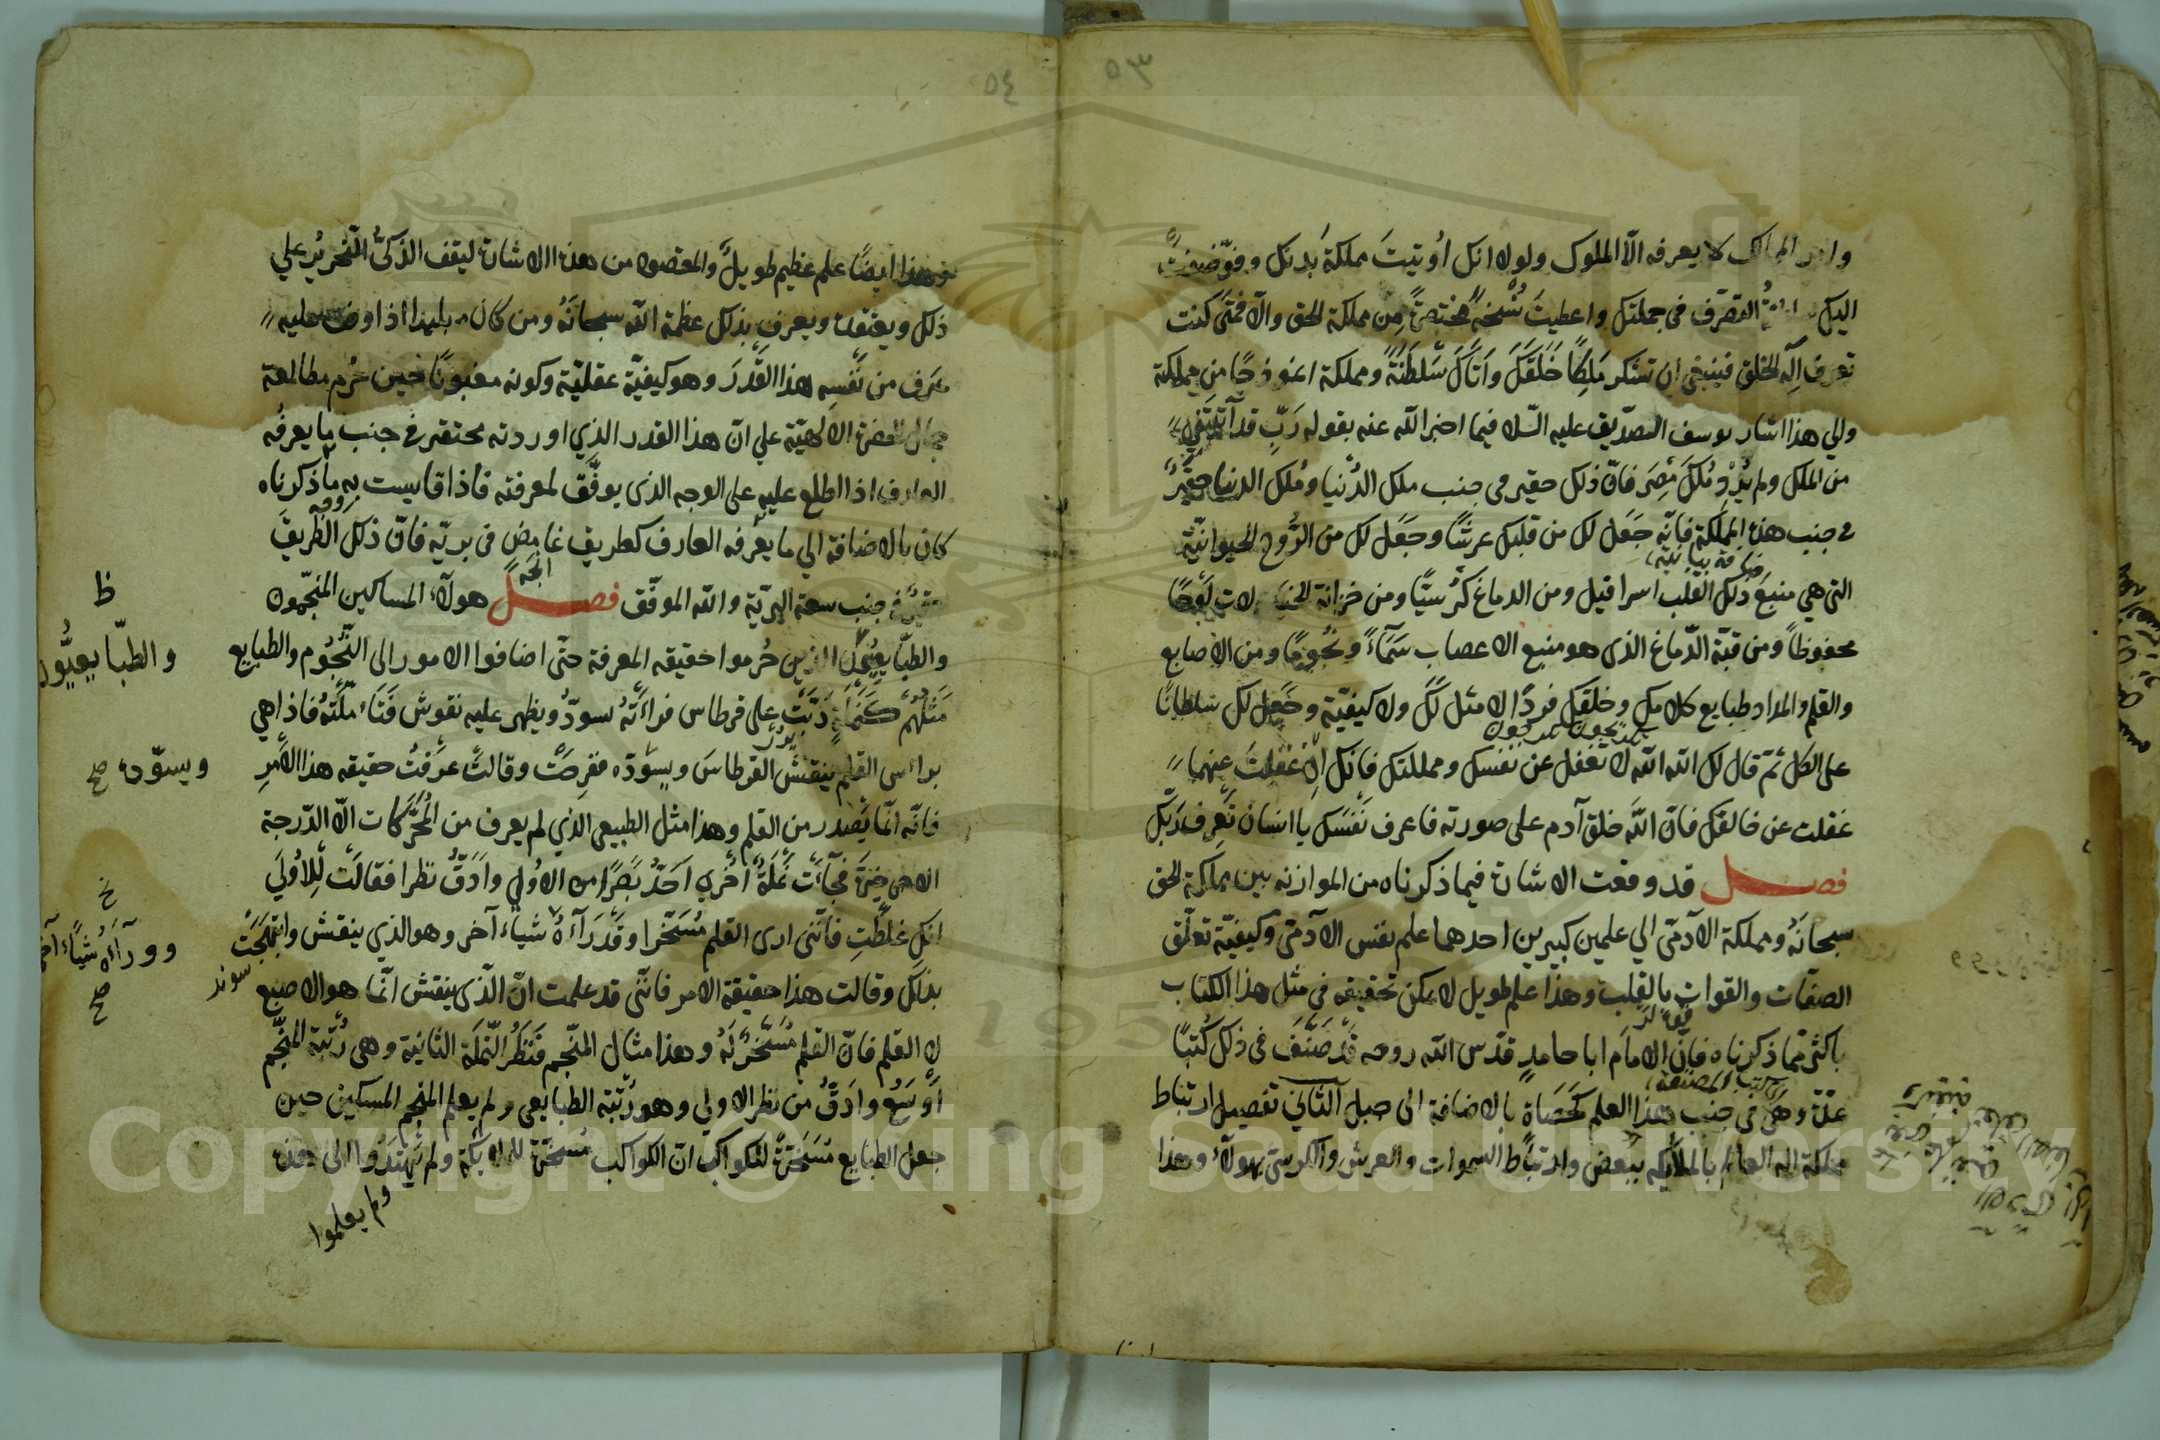 ٥٣
الممالك لا يعرفه الّا الملوك ولولا انك اُوتيتَ مملكةَ بدنك وفوّضت
اليك التصرّف في جملتك واعطيت نُسْخةً مختصرةً من مملكة الحق والّا فمتى كنت
تعرف اِلٰه الخلق فينبغي ان تشكر مَلِكًا خَلَقَكَ وآتاكَ سَلْطَنَةً ومملكة انموذجًا من مملكة
والي هذا اشار يوسف الصدّيق عليه السّلام فيما اخبر اللّه عنه بقوله رَبِّ قد آتيتني
من الملك ولم يُرِدْ مُلكَ مِصرَ فانّ ذلك حقير في جنب ملك الدُّنيا ومُلك الدنيا حقيرٌ
في جنب هذه المملكة فانّه جَعَل لك من قلبك عرشًا وجَعَل لك من الرُّوح الحيوانيّة
التي هي منبعَ ذلك القلب اسرافيل ومن الدماغ كُرسيًّا ومن خزانة الخيالات لَوْحًا
محفوظاً ومن قبّة الدّماغ الذي هو منبع الاعصاب سَمَآءً ونُجُومًا ومن الاصابع
والقلم والمداد طبايع كلامك وخلقك فردًا لا مثل لكَ ولا كيفيّة وجَعل لك سلطانًا
على الكل ثمّ قال لك اللّه اللّه لا تغفل عن نفسك ومملكتك فانك اِن غفلتَ عنهما
غفلت عن خالقك فانّ اللّه خلق آدم على صورته فاعرف نَفْسَكَ يا انسان تَعرِف رَبَّك
فصل قد وقعت الاشارة فيما ذكرناه من الموازنه بين مملكة الحق
سبحانهُ ومملكة الآدمّي الي علمين كبيرين احدهما علم نفس الآدمّي وكيفيّة تعلّق
الصفات والقوات بالقلب وهذا علم طويل لا يمكن تحقيقه في مثل هذا الكتاب
باكثر ممّا ذكرناه فانّ الامام ابا حامدٍ قدّس اللّه روحه قد صَنَّف في ذلك كُتبًا
عدّة وهي في جنب هذا العلم كحَصَاةٍ بالاضافة الى جبل الثّاني تفصيل ارتباط
مملكة اله العالم بالملآئكه ببعض وارتباط السموات والعرش والكرسي بهولآء وهذا
٥٤
وهذا ايضًا علم عظيم طويل والمقصود من هذه الاشارة ليقف الذكيّ النّحرير علي
ذلك ويعتقده ويعرف بذلك عظمة اللّه سبحانَهُ ومن كان بليدا اذا عليه
عَرَف من نَفْسِه هذا القَدَرَ وهو كيفيّة عقليّة وكونه مغبونًا حين حُرم مطالعة
جمال الحضرة الالهيّة علي انّ هذا القدر الذي اوردته محتقر في جنب ما يعرفُه
العارف اذا اطلع عليه على الوجه الذي يوفَّق لمعرفته فاذا قايست به ما ذكرناه
كان بالاضافة الي ما يعرفه العارف كطريق غامِض في بريّه فانّ ذلك الطّريق
حقيرٌ في جنب سعة البريّة واللّه الموفّق فصل هولآء المساكين المنجّمون
والطبّايعيّون الذين حُرموا حقيقه المعرفة حتّى اضافوا الامور الى النُّجُوم والطبايع
مَثَلُهُم كَنَمْلَةٍ دَبَّتْ على قرطاس فراَتْهُ يسودّ ويظهر عليه نقوش فتأمّلَتْهُ فاذا هي
براس القلم ينقش القرطاسَ ويسوّده ففرِحَتْ وقالت عَرَفتُ حقيقه هذا الأمرِ
فانّه انّما يَصْدر من القلم وهذا مثل الطبيعي الذي لم يعرف من المُحَرِّكات الّا الدّرجة
الاخيرة فجآءَت نَمْلَةٌ اُخْري اَحَدُّ بَصَرًا من الاُولي واَدَقّ نظرا فقالَتْ لِلاُولَي
انكِ غلطْتِ فانّني ارى القلم مُسَخَّرا وقَد رآهُ شياءً آخر وهو الذي ينقش وابتهجَتْ
بذلك وقالت هذا حقيقة الامر فانّني قد علمت انّ الّذي ينقش انّما هو الاصبع
لا القلم فانّ القلم مُسَخَّرٌ لَهُ وهذا مثال المنّجم فَنَظَرُ النّملَة الثانية وهي رُتبة المنّجم
اَوسَعُ واَدَقُّ من نظر الاولي وهو رُتْبَة الطبايعي ولم يعلم المنجم المسكين حين
جعل الطبايع مُسَخَّرةً للكواكب انّ الكواكب مُسخّرة للملايكة ولم يَهتَدُوا الى هذه
ولم يعلموا
ظ
والطبّايعيُّون
ويسوّده صح
خ
وورآءَهُ شيئًا آخر
صح
Copyright © King Saud University
1957